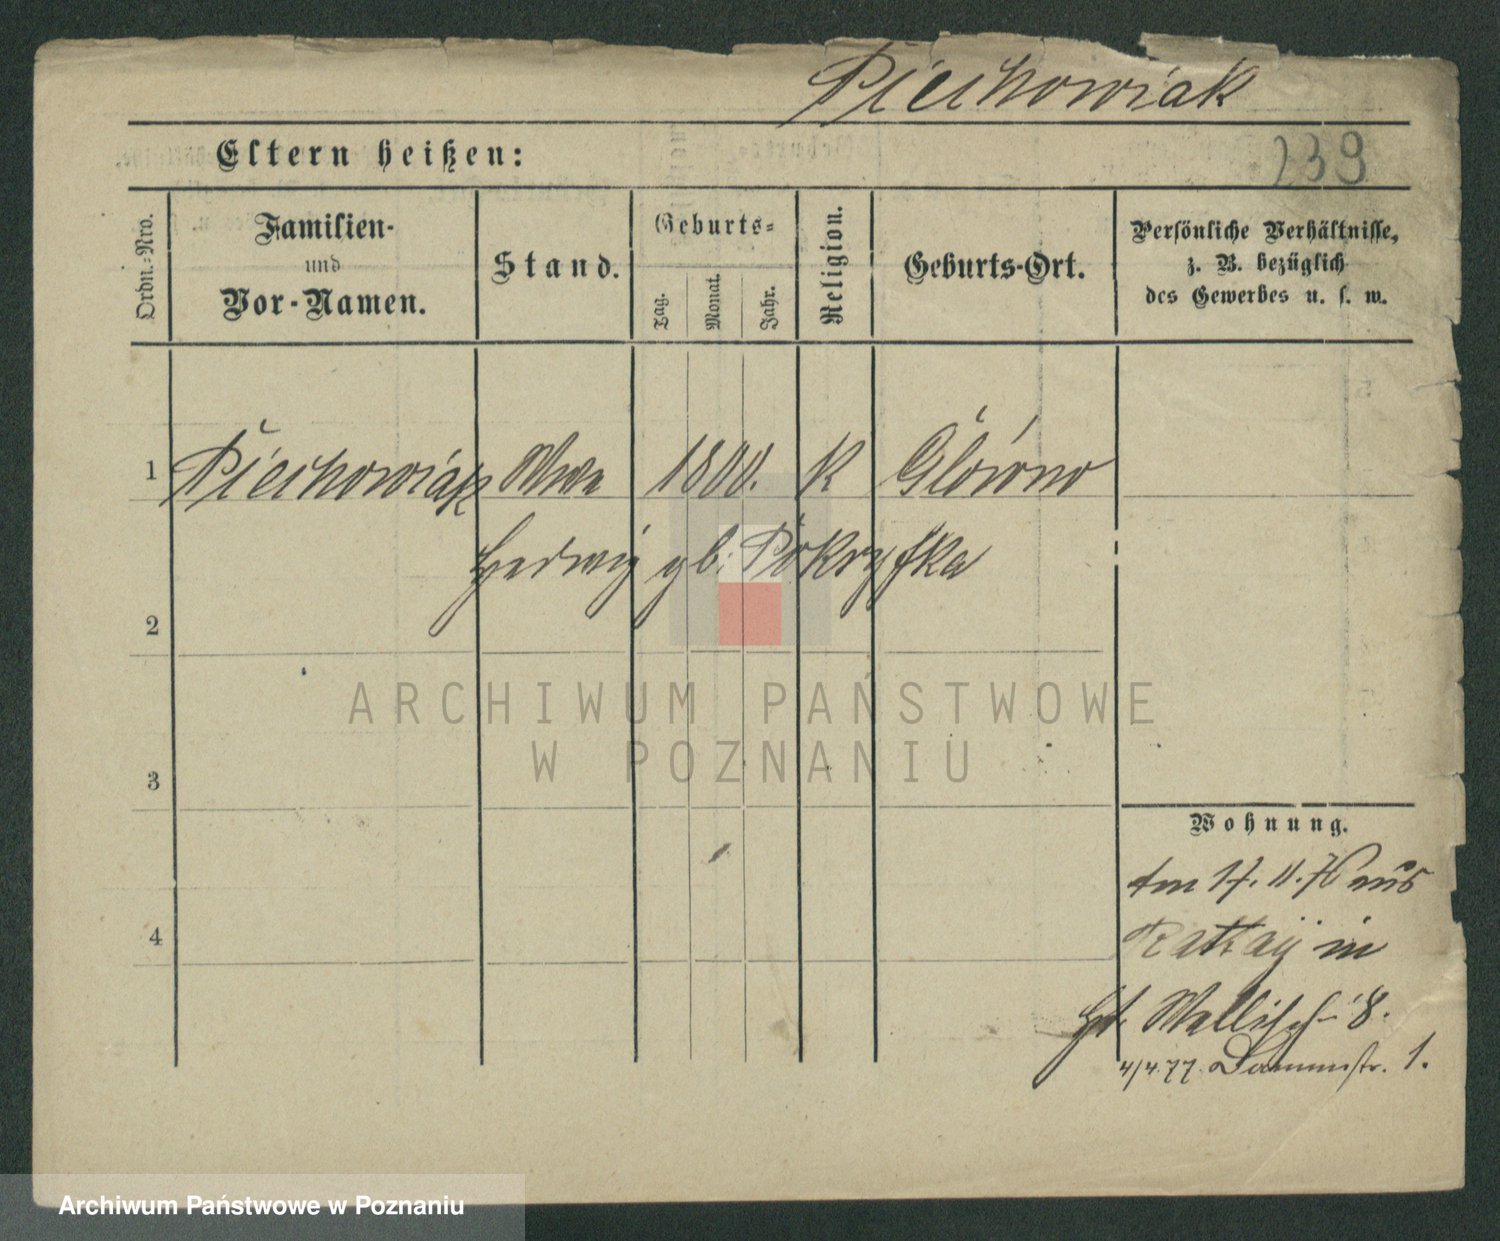 Piechowiak
Eltern heißen:
239
Ordn.-Nro.
Familien-
und
Vor-Namen.
Stand.
Geburts-
Tag.
Monat.
Jahr.
Religion.
Geburts-Ort.
Persönliche Verhältnisse,
z. B. bezüglich
des Gewerbes u. s. w.
1 Piechowiak Wwe 1800. K Glówno
Hedwig gb: Pokryfka
2
ARCHIWUM PAŃSTWOWE
W POZNANIU
3
Wohnung.
17. 11. 76 aus
4
Rattay in
Gr. Wallisch. 8.
4/4.77. Dammstr. 1.
Archiwum Państwowe w Poznaniu